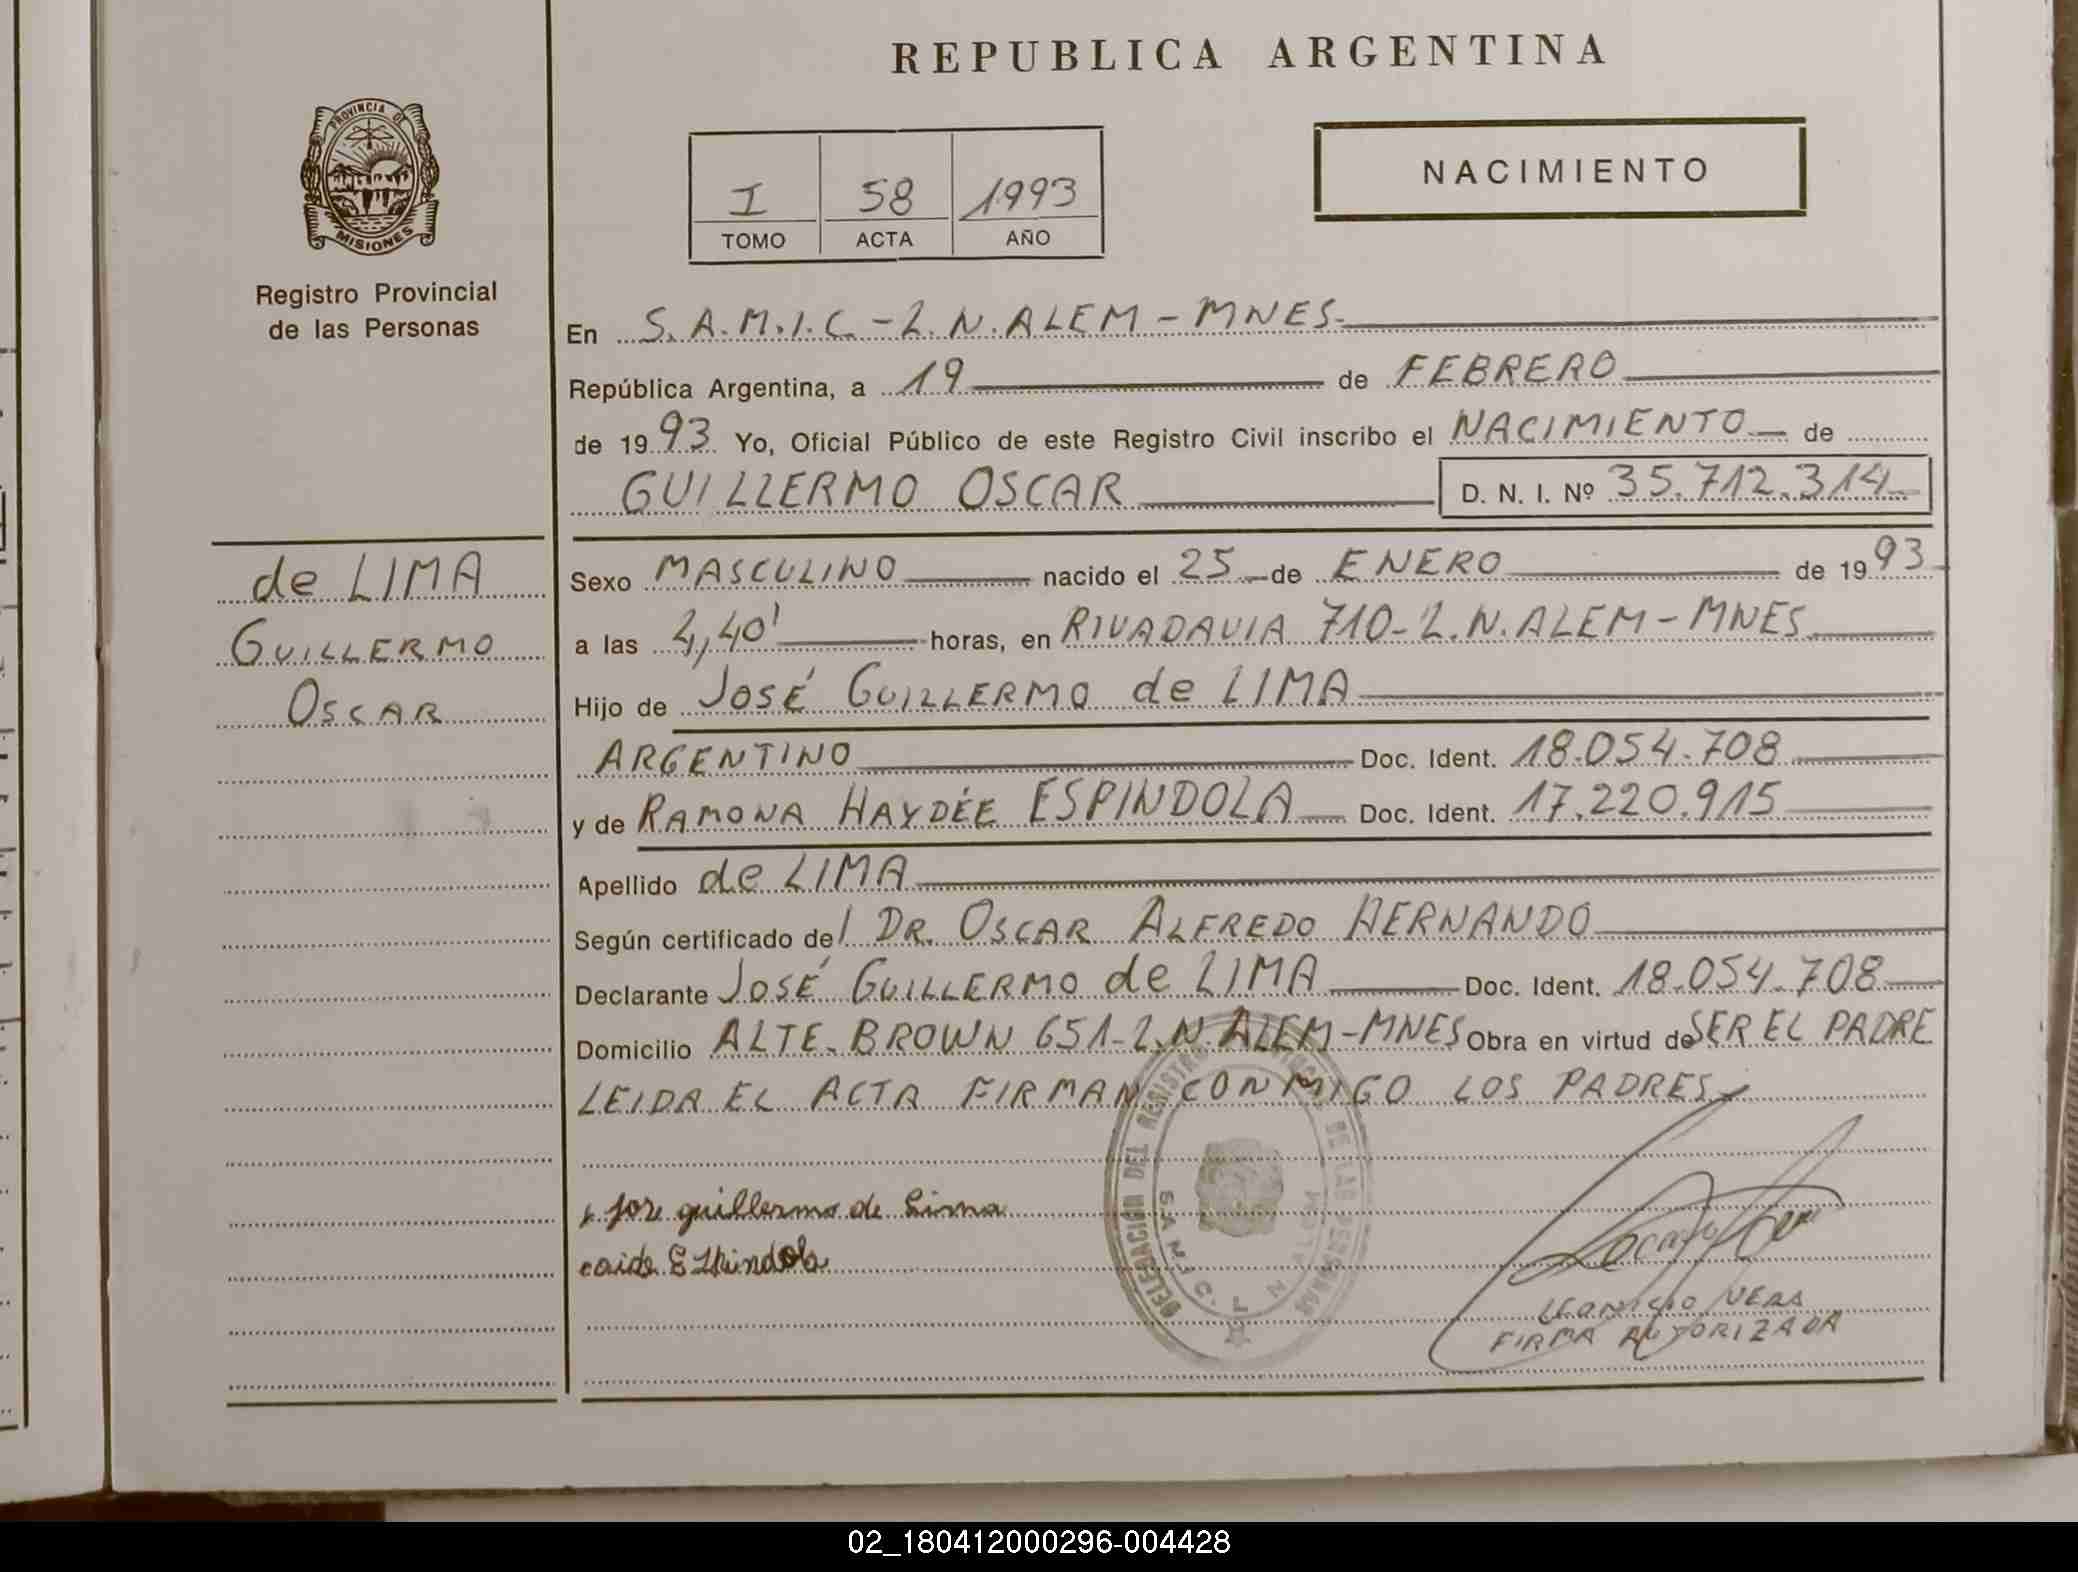 REPUBLICA ARGENTINA
PROVINCIA DE
MISIONES
Registro Provincial
de las Personas
I 58 1993
TOMO ACTA AÑO
NACIMIENTO
En S.A.M.I.C.-L.N.ALEM-MNES.
República Argentina, a 19 de FEBRERO
de 1993 Yo, Oficial Público de este Registro Civil inscribo el NACIMIENTO de
GUILLERMO OSCAR D. N. I. Nº 35.712.314
de LIMA
GUILLERMO
OSCAR
Sexo MASCULINO nacido el 25 de ENERO de 1993
a las 4,40' horas, en RIVADAVIA 710-L.N.ALEM-MNES
Hijo de JOSÉ GUILLERMO de LIMA
ARGENTINO Doc. Ident. 18.054.708
y de RAMONA HAYDÉE ESPINDOLA Doc. Ident. 17.220.915
Apellido de LIMA
Según certificado del DR. OSCAR ALFREDO HERNANDO
Declarante JOSÉ GUILLERMO de LIMA Doc. Ident. 18.054.708
Domicilio ALTE. BROWN 651-L.N.ALEM-MNES Obra en virtud de SER EL PADRE
LEIDA EL ACTA FIRMAN CONMIGO LOS PADRES
DELEGACION DEL REGISTRO DE LAS PERSONAS
S.A.M.I.C. L. N. ALEM
jose guillermo de Lima
VERA
FIRMA AUTORIZADA
02_180412000296-004428